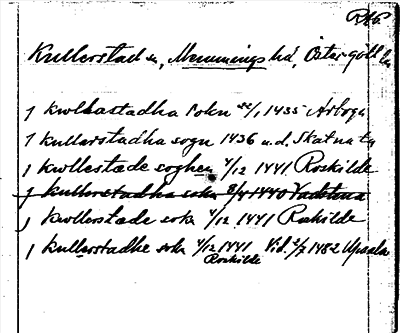 RAP
Kullerstad sn, Memmings hd, Östergötl. län
1 kwlkastadha sokn 22/1 1435 Arboga
1 kullarstadha sogn 1436 u.d. Skatnata
1 kwllestæde soghen 4/12 1441 Roskilde
1 kullerstadha sokn 8/4 1440 Vadstena
1 kwllerstæde sokn 4/12 1441 Roskilde
1 kullerstadhe sokn 4/12 1441 Vid. 2/7 1482 Upsala
Roskilde